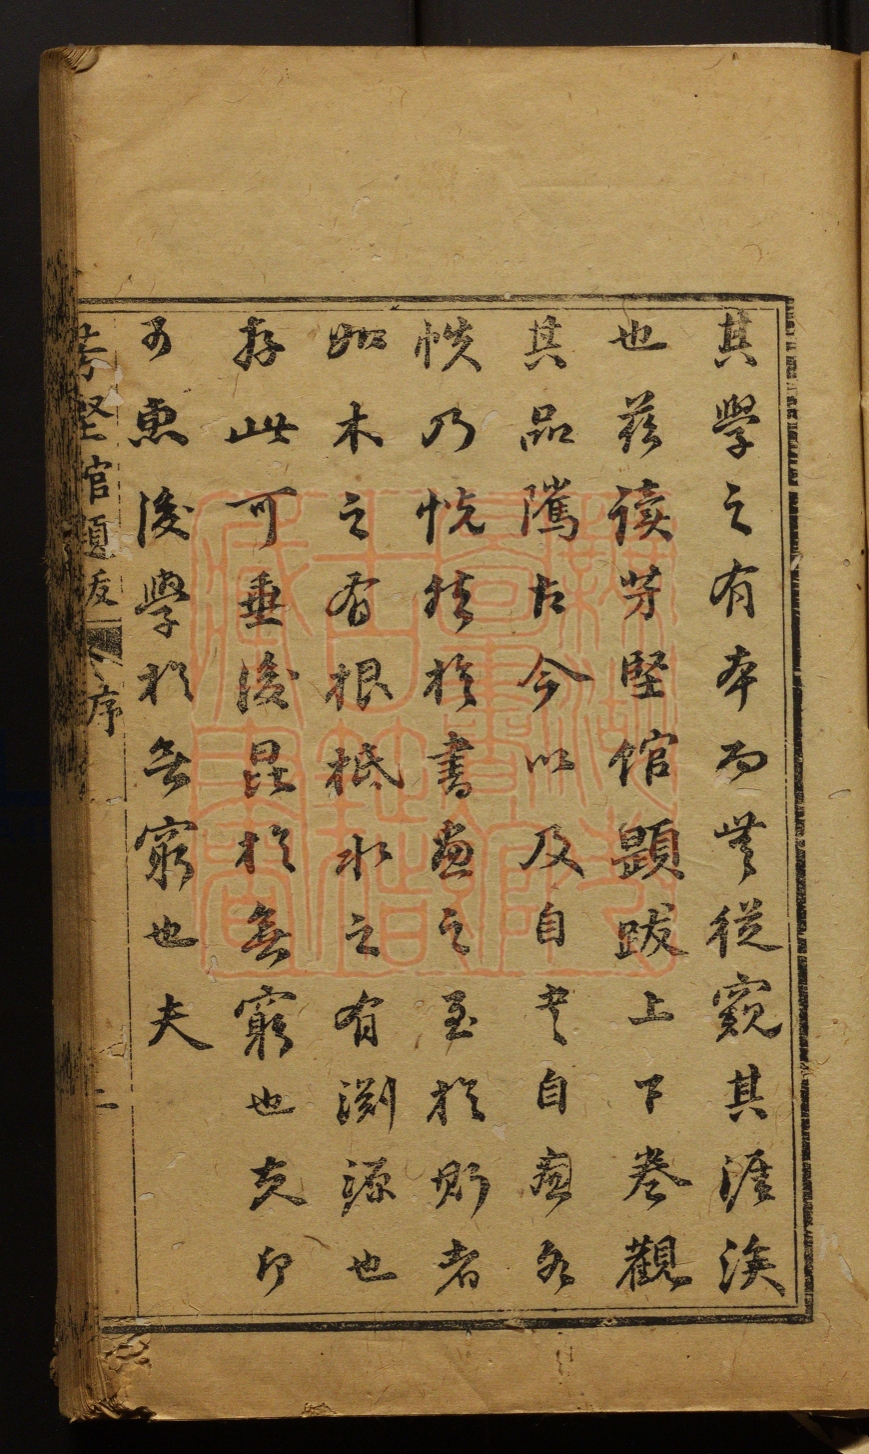 其學之有本而無從窺其涯涘
也茲读芳堅館題跋上下卷觀
其品隲古今以及自書自畫各
帙乃恍然於書畫之至於斯者
如木之有根柢水之有渊源也
存此可垂後昆於無窮也即
惠後學於無窮也夫
芳堅館題跋 序 二